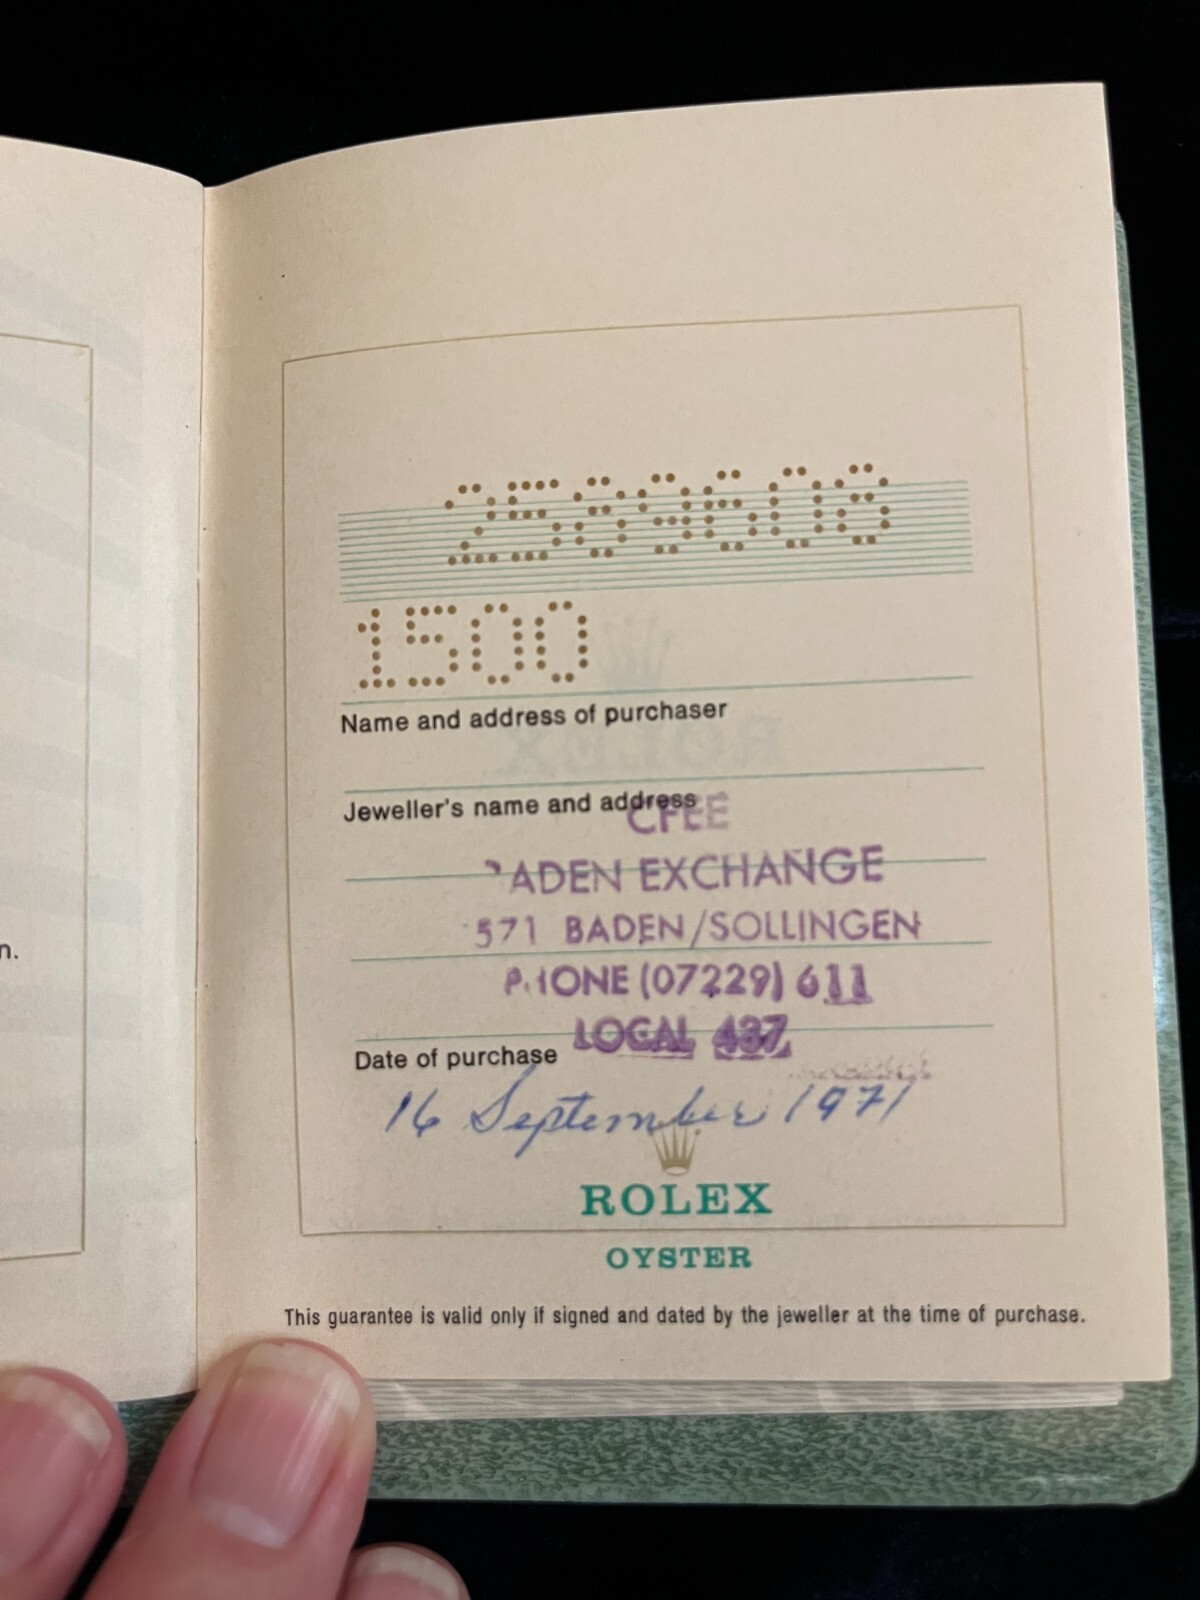 n.
2589608
1500
Name and address of purchaser
Jeweller's name and address
CFEE
BADEN EXCHANGE
571 BADEN/SOLLINGEN
PHONE (07229) 611
LOCAL 437
Date of purchase
16 September 1971
ROLEX
OYSTER
This guarantee is valid only if signed and dated by the jeweller at the time of purchase.